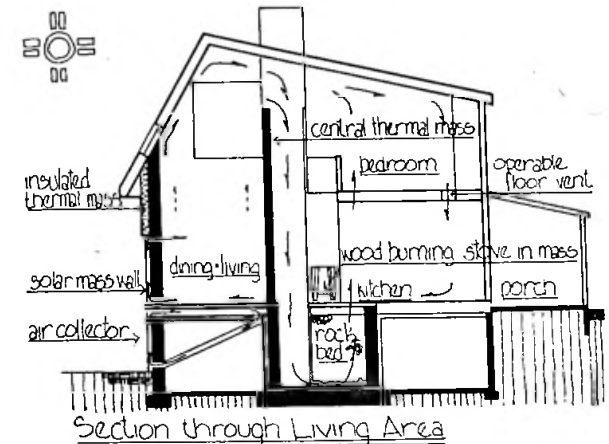 central thermal mass
bedroom
operable
floor vent
insulated
thermal mass
wood burning stove in mass
dining·living
solar mass wall
kitchen
porch
air collector
rock
bed
Section through Living Area